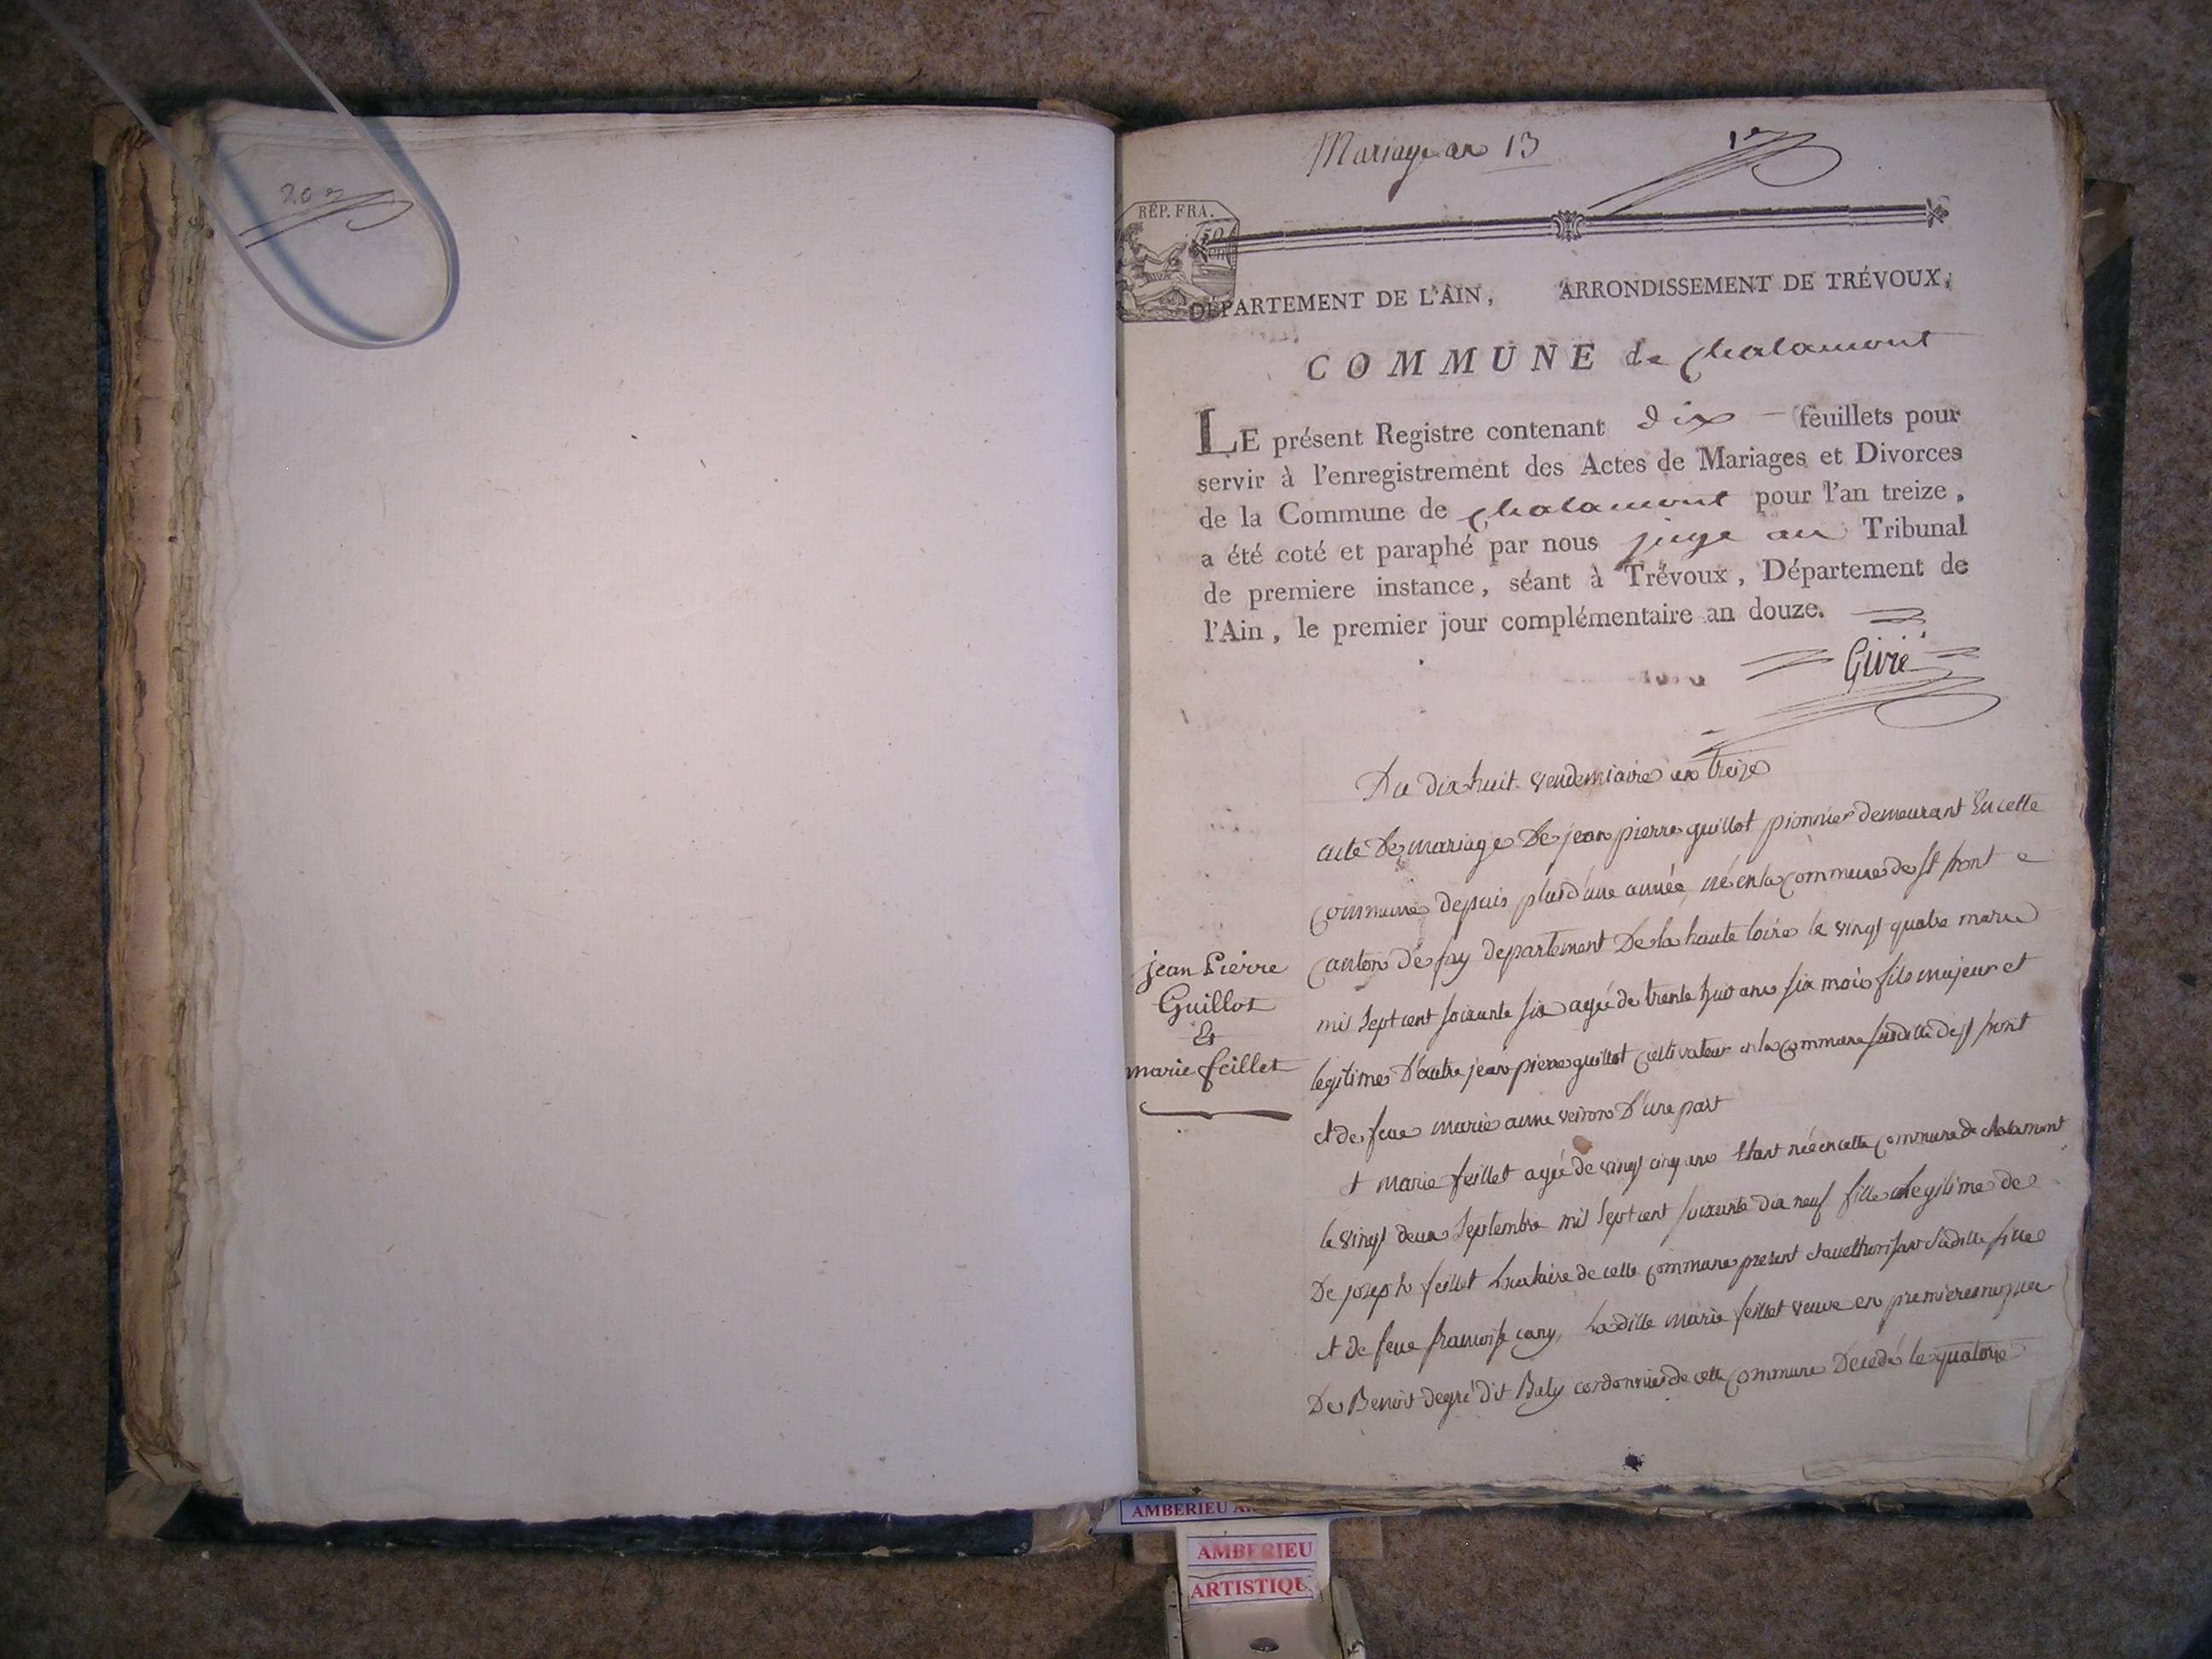 20e
Mariage an 13
1er
RÉP. FRA.
50
DÉPARTEMENT DE L'AIN, ARRONDISSEMENT DE TRÉVOUX,
COMMUNE de chalamont
LE présent Registre contenant dix feuillets pour
servir à l'enregistrement des Actes de Mariages et Divorces
de la Commune de chalamont pour l'an treize,
a été coté et paraphé par nous juge au Tribunal
de premiere instance, séant à Trévoux, Département de
l'Ain, le premier jour complémentaire an douze.
Givié
Du dix huit vendemiaire an treize
acte De mariage De jean pierre guillot pionnier demeurant En cette
commune depuis plus d'une année, né en la commune de st front
canton de fay departement De la haute loire le vingt quatre mars
mil sept cent soixante six agé de trente huit ans six mois fils majeur et
legitime D'autre jean pierre guillot cultivateur en la commune susditte de st front
et de feue marie anne veiron D'une part
jean Pierre
Guillot
&
marie feillet
et marie feillet agée de vingt cinq ans Etant née en cette commune de chalamont
le vingt deux Septembre mil sept cent soixante dix neuf fille legitime de
De joseph feillet locataire de cette commune present et authorisant sa ditte fille
et de feue francoise cany, la ditte marie feillet veuve en premieres noces
De Benoit degré dit Baly cordonnier de cette commune Decedé le quatorze
AMBERIEU
AMBERIEU
ARTISTIQU